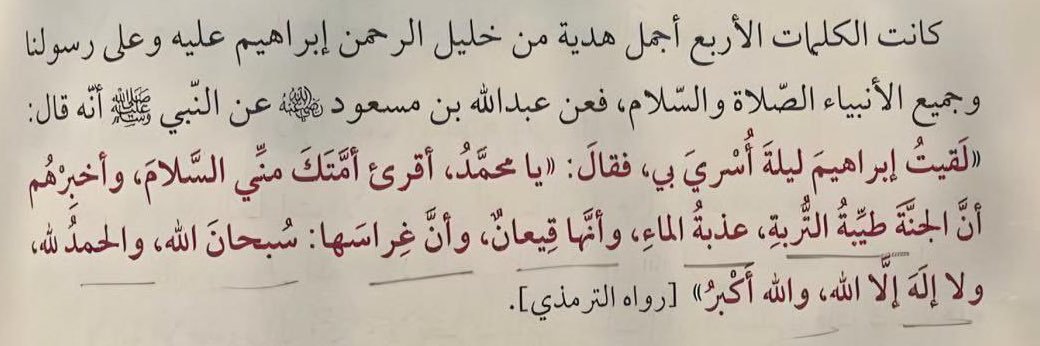 كانت الكلمات الأربع أجمل هدية من خليل الرحمن إبراهيم عليه وعلى رسولنا
وجميع الأنبياء الصّلاة والسّلام، فعن عبدالله بن مسعود رضي الله عنه عن النّبي ﷺ أنّه قال:
«لَقيتُ إبراهيمَ ليلةَ أُسْريَ بي، فقالَ: «يا محمَّدُ، أقرئ أمَّتَكَ منِّي السَّلامَ، وأخبِرْهُم
أنَّ الجنَّةَ طيِّبةُ التُّربةِ، عذبةُ الماءِ، وأنَّها قِيعانٌ، وأنَّ غِراسَها: سُبحانَ الله، والحمدُ لله،
ولا إلَهَ إلَّا الله، والله أَكْبرُ» [رواه الترمذي].